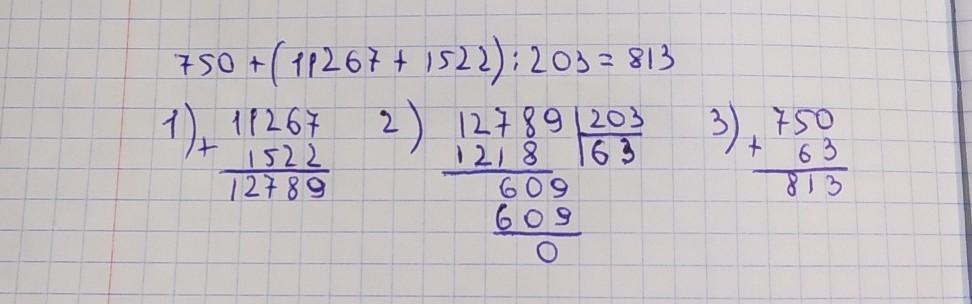 750 + (11267 + 1522) : 203 = 813
1) + 11267 2) 12789 | 203 3) + 750
1522 1218 | 63 63
12789 609 813
609
0